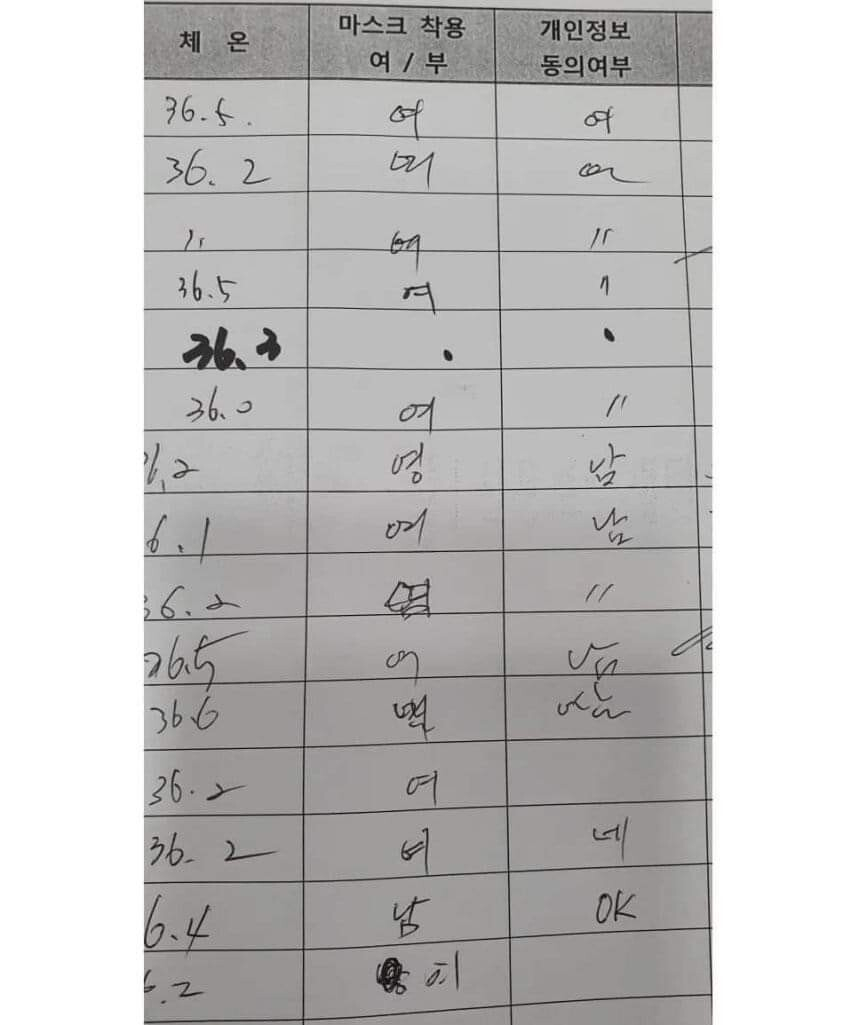 체 온 마스크 착용 개인정보
여 / 부 동의여부
36.5. 여 여
36.2 여 여
〃 여 〃
36.5 여 〃
36.3 . .
36.0 여 〃
36.2 영 남
6.1 여 남
36.2 〃
36.5 여 남
36.6 남
36.2 여
36.2 여 네
6.4 남 OK
6.2 히